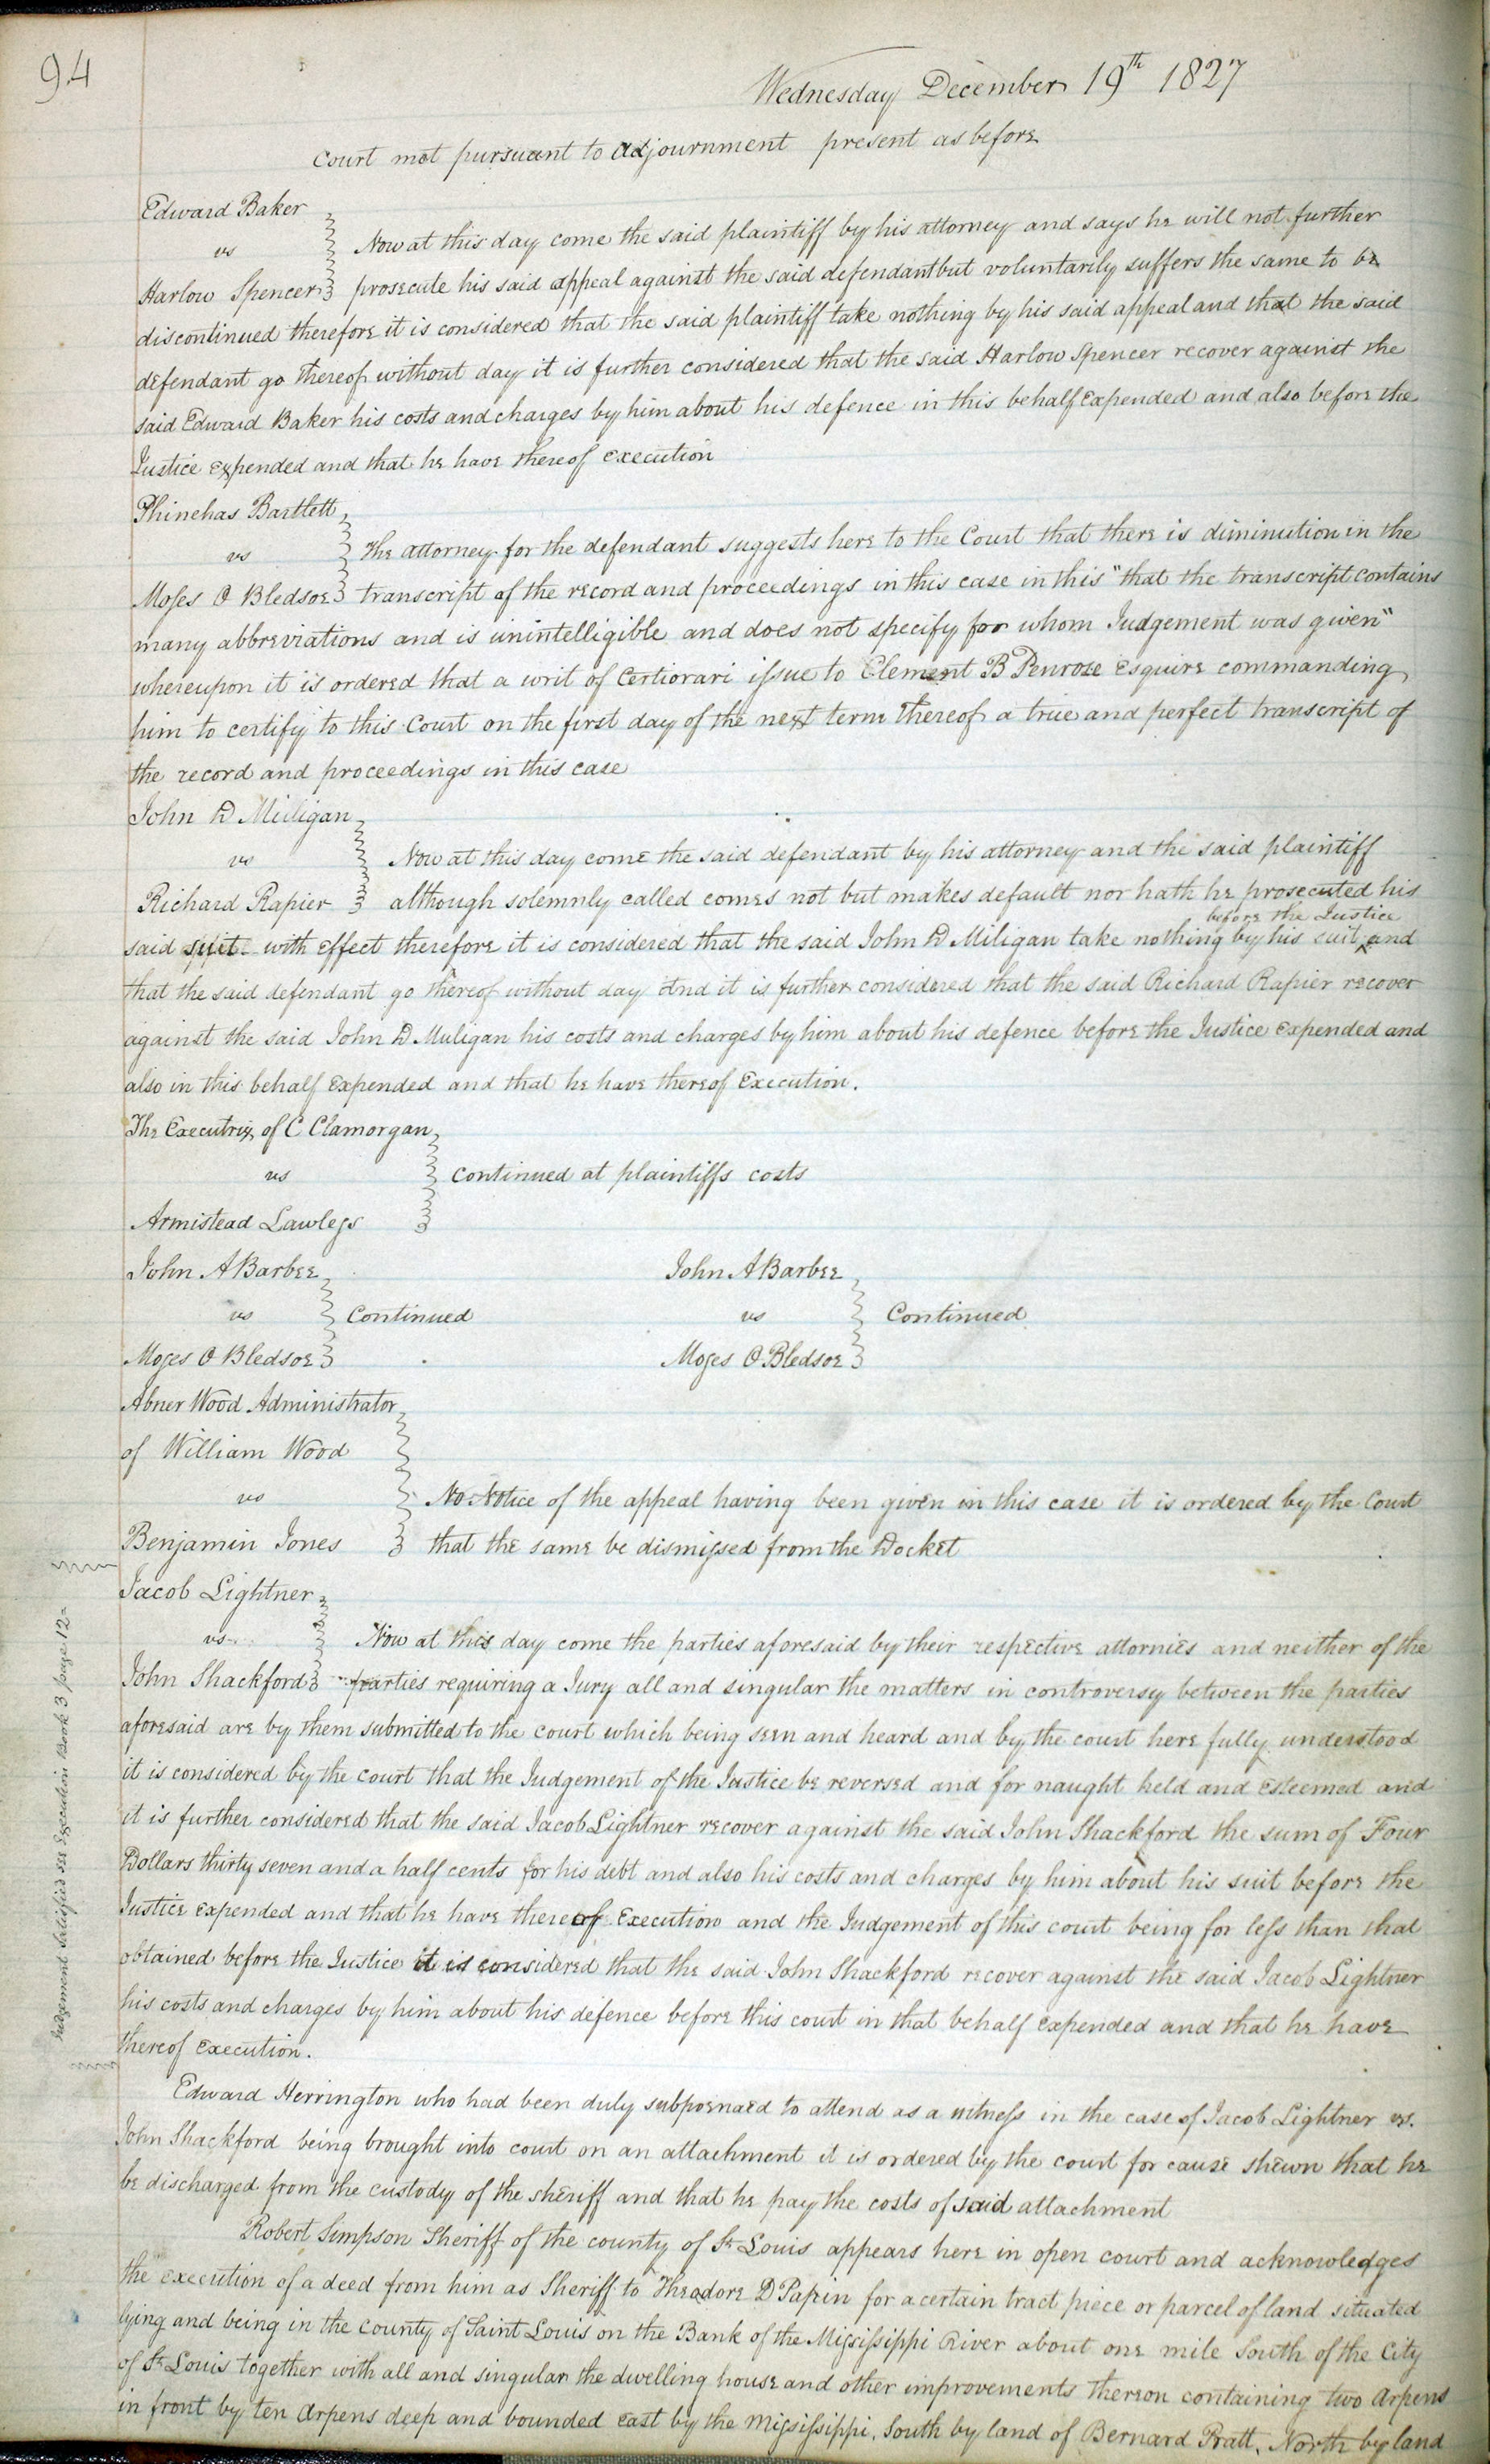 94
Wednesday December 19th 1827
Court met pursuant to adjournment present as before
Edward Baker
vs
Now at this day come the said plaintiff by his attorney and says he will not further
Harlow Spencer prosecute his said appeal against the said defendant but voluntarily suffers the same to be
discontinued therefore it is considered that the said plaintiff take nothing by his said appeal and that the said
defendant go thereof without day it is further considered that the said Harlow Spencer recover against the
said Edward Baker his costs and charges by him about his defence in this behalf expended and also before the
Justice expended and that he have thereof execution
Phinehas Bartlett
vs The attorney for the defendant suggests here to the Court that there is diminution in the
Moses O Bledsoe transcript of the record and proceedings in this case in this "that the transcript contains
many abbreviations and is unintelligible and does not specify for whom Judgement was given"
whereupon it is ordered that a writ of Certiorari issue to Clement B Penrose Esquire commanding
him to certify to this Court on the first day of the next term thereof a true and perfect transcript of
the record and proceedings in this case
John D Miligan
vs Now at this day come the said defendant by his attorney and the said plaintiff
Richard Rapier although solemnly called comes not but makes default nor hath he prosecuted his
before the Justice
said suit with effect therefore it is considered that the said John D Miligan take nothing by his suit and
that the said defendant go thereof without day And it is further considered that the said Richard Rapier recover
against the said John D Muligan his costs and charges by him about his defence before the Justice expended and
also in this behalf expended and that he have thereof Execution.
The Executrix of C Clamorgan
vs Continued at plaintiffs costs
Armistead Lawless
John A Barbee John A Barbee
vs Continued vs Continued
Moses O Bledsoe Moses O Bledsoe
Abner Wood Administrator
of William Wood
vs No Notice of the appeal having been given in this case it is ordered by the Court
Benjamin Jones that the same be dismissed from the Docket
Jacob Lightner
vs Now at this day come the parties aforesaid by their respective attornies and neither of the
John Shackford parties requiring a Jury all and singular the matters in controversy between the parties
aforesaid are by them submitted to the court which being seen and heard and by the court here fully understood
it is considered by the court that the Judgement of the Justice be reversed and for naught held and esteemed and
it is further considered that the said Jacob Lightner recover against the said John Shackford the sum of Four
Dollars thirty seven and a half cents for his debt and also his costs and charges by him about his suit before the
Justice expended and that he have thereof Execution and the Judgement of this court being for less than that
obtained before the Justice it is considered that the said John Shackford recover against the said Jacob Lightner
his costs and charges by him about his defence before this court in that behalf expended and that he have
thereof execution.
Judgement Satisfied see Execution Book 3 page 12
Edward Herrington who had been duly subpoenaed to attend as a witness in the case of Jacob Lightner vs.
John Shackford being brought into court on an attachment it is ordered by the court for cause shewn that he
be discharged from the custody of the sheriff and that he pay the costs of said attachment
Robert Simpson Sheriff of the county of St Louis appears here in open court and acknowledges
the execution of a deed from him as Sheriff to Theodore D Papin for a certain tract piece or parcel of land situated
lying and being in the county of Saint Louis on the Bank of the Mississippi River about one mile South of the City
of St Louis together with all and singular the dwelling house and other improvements thereon containing two Arpens
in front by ten Arpens deep and bounded east by the Mississippi, South by land of Bernard Pratt, North by land